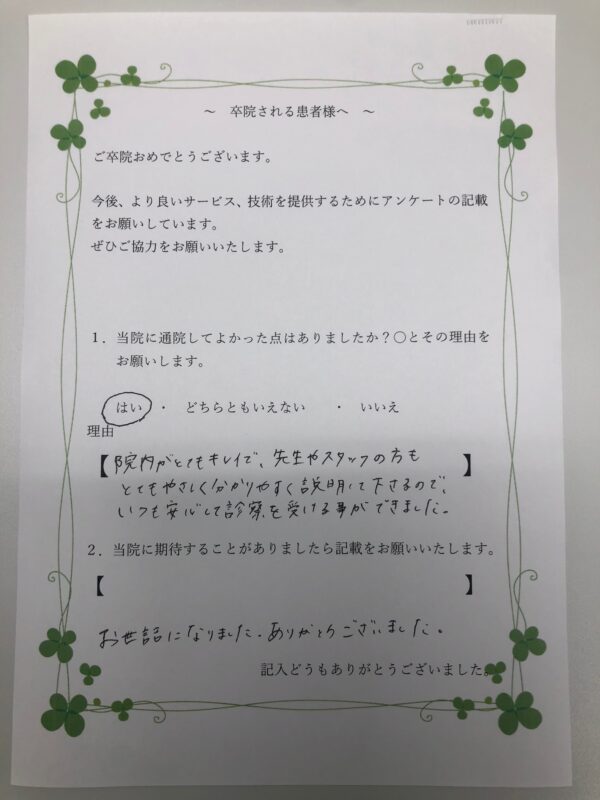 ～ 卒院される患者様へ ～
ご卒院おめでとうございます。
今後、より良いサービス、技術を提供するためにアンケートの記載
をお願いしています。
ぜひご協力をお願いいたします。
1. 当院に通院してよかった点はありましたか？○とその理由を
お願いします。
はい ・ どちらともいえない ・ いいえ
理由
【院内がとてもキレイで、先生やスタッフの方も 】
とてもやさしく分かりやすく説明して下さるので、
いつも安心して診察を受ける事ができました。
2. 当院に期待することがありましたら記載をお願いいたします。
【 】
お世話になりました。ありがとうございました。
記入どうもありがとうございました。